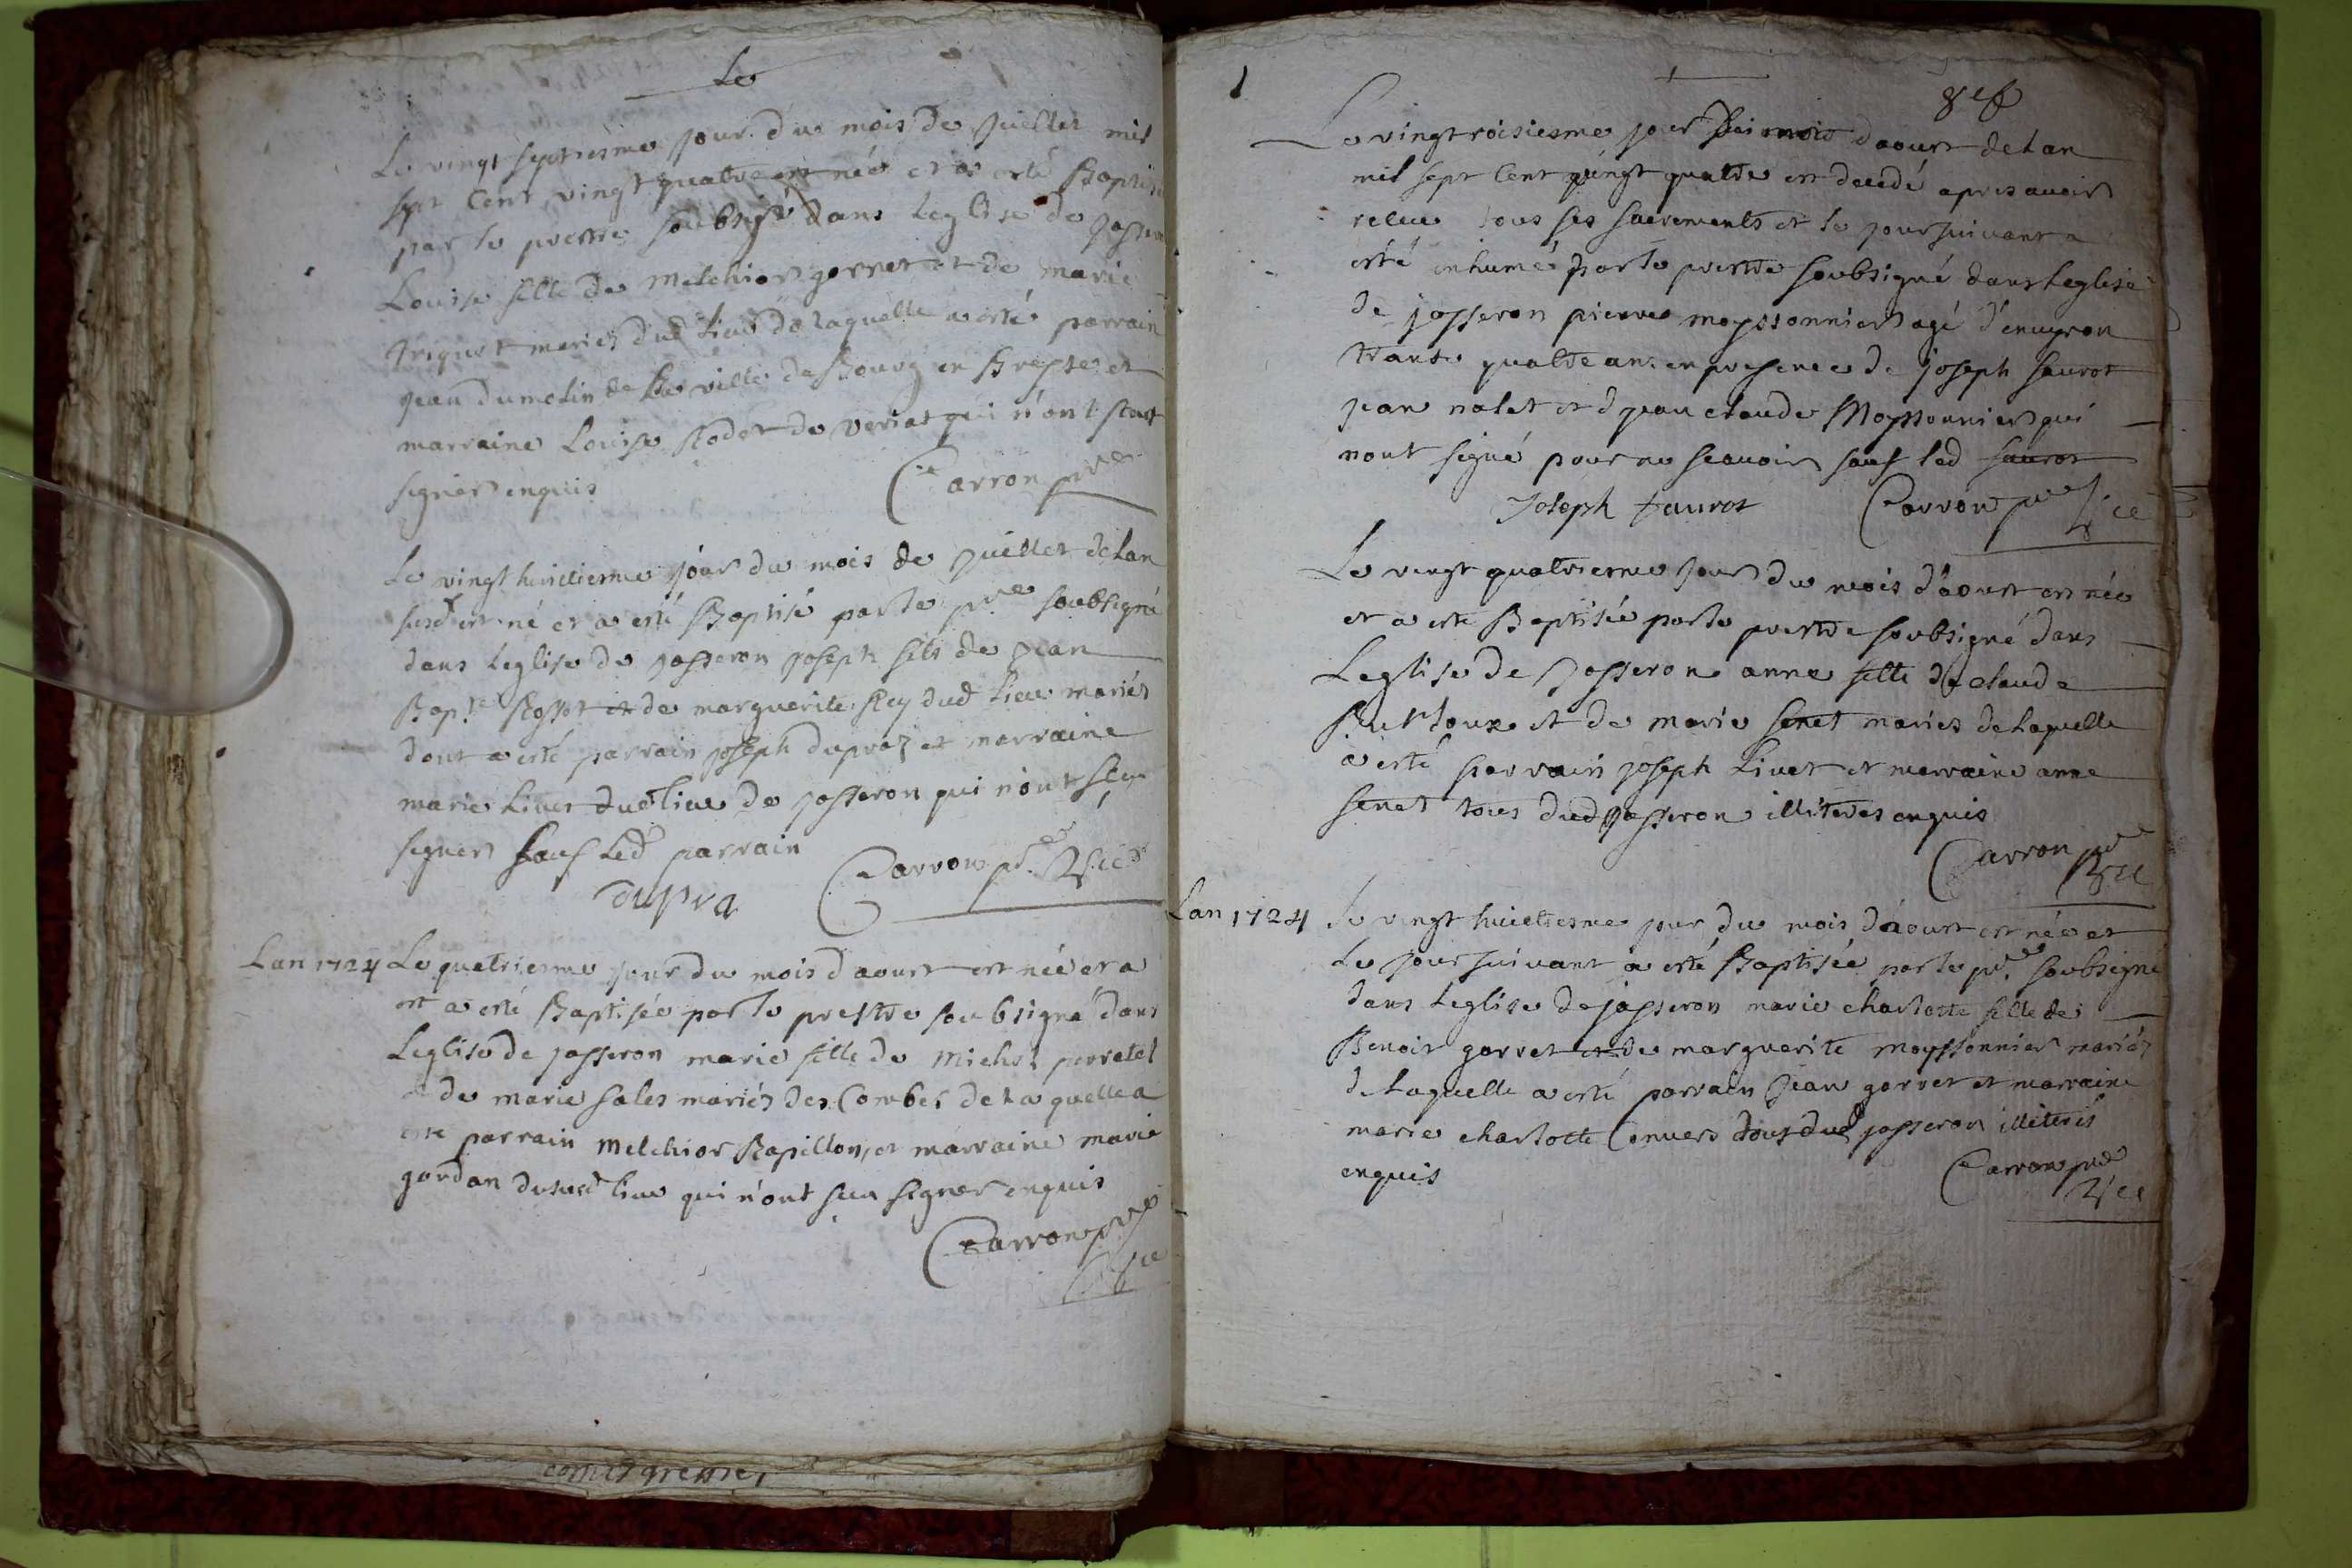 Le
Le vingt septiesme jour du mois de Juillet mil
sept Cent vingt quatre est née et a esté Baptisée
par le prestre soubsigné dans Leglise de Jasseron
Louise fille de Melchior gorret et de marie
mariés dud lieu de laquelle a esté parrain
jean dumolin de la ville de Bourg en Bresse et
marraine Louise Rodet de veriat qui n'ont sceut
signer enquis
Carron pre
Le vingt huictiesme jour du mois de Juillet de Lan
susd est né et a esté Baptisé par le pre soubsigné
dans Leglise de Jasseron Joseph fils de jean
Bapte Rossot et de marguerite Rey dud Lieu mariés
dont a esté parrain joseph dupraz et marraine
marie Livet dud lieu de jasseron qui n'ont sceu
signer sauf Led parrain
dupra
Carron pre Vice
Lan 1724 Le quatriesme jour du mois d'aoust est née et a
et a esté Baptisée par le prestre soubsigné dans
Leglise de jasseron marie fille de Michel perretel
de marie sales mariés des Combes de laquelle a
esté parrain Melchior Rapillon, et marraine marie
gordan dususd lieu qui n'ont sceu signer enquis
Carron pre
Vice
Le vingtroisiesme jour du mois d'aoust de Lan
mil sept Cent vingt quatre est decedé apres avoir
receu tous ses sacrements et le jour suivant a
esté inhumé par le prestre soubsigné dans Leglise
de jasseron pierre moyssonnier agé d'environ
trante quatre ans en presence de joseph saurot
jean nalet et d jean claude Moyssonnier qui
nont signé pour ne scavoir sauf led saurot
Joseph saurot
Carron pre Vice
Le vingt quatriesme jour du mois d'aoust est née
et a esté Baptisée par le prestre soubsigné dans
Leglise de Jasseron anne fille de claude
et de marie senet mariés de laquelle
a esté parrain joseph Livet et marraine anne
senet tous dud Jasseron illiterés enquis
Carron pre
Vice
Lan 1724 Le vingt huictiesme jour du mois d'aoust est née et
Le jour suivant a esté Baptisée par le pre soubsigné
dans Leglise de jasseron marie charlotte fille de
Benoit gorret et de marguerite moyssonnier mariés
de Laquelle a esté parrain Jean gorret et marraine
marie charlotte Convers tous dud jasseron illiterés
enquis
Carron pre
Vice